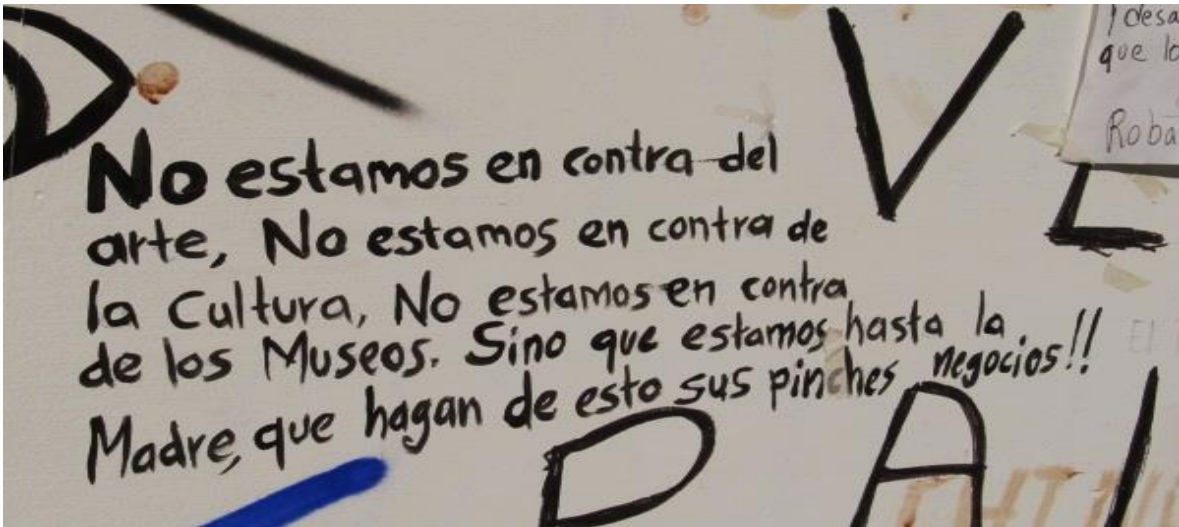 No estamos en contra del
arte, No estamos en contra de
la Cultura, No estamos en contra
de los Museos. Sino que estamos hasta la
Madre, que hagan de esto sus pinches negocios!!
que lo
V
P A